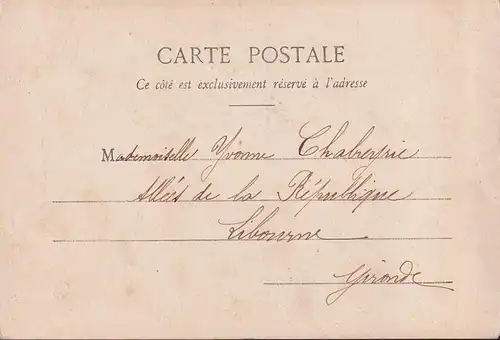 CARTE POSTALE
Ce côté est exclusivement réservé à l'adresse
Mademoiselle Yvonne Chabeyrie
Allées de la République
Libourne
Gironde